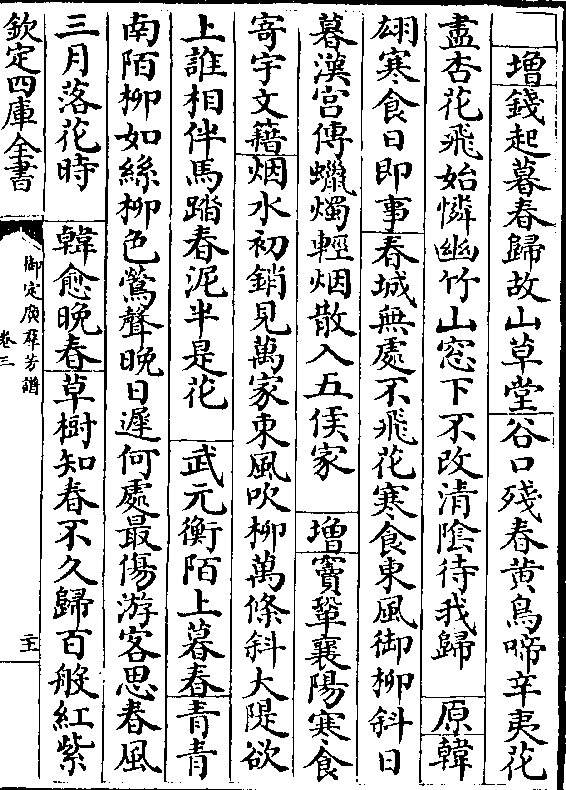 增錢起暮春歸故山草堂谷口殘春黃鳥啼辛夷花
盡杏花飛始憐幽竹山窓下不改清陰待我歸 原韓
翃寒食日即事春城無處不飛花寒食東風御柳斜日
暮漢宮傳蠟燭輕烟散入五侯家 增竇鞏襄陽寒食
寄宇文籍烟水初銷見萬家東風吹柳萬條斜大隄欲
上誰相伴馬踏春泥半是花 武元衡陌上暮春青青
南陌柳如絲柳色鶯聲晚日遲何處最傷游客思春風
三月落花時 韓愈晚春草樹知春不久歸百般紅紫
欽定四庫全書 御定廣羣芳譜 卷三 主